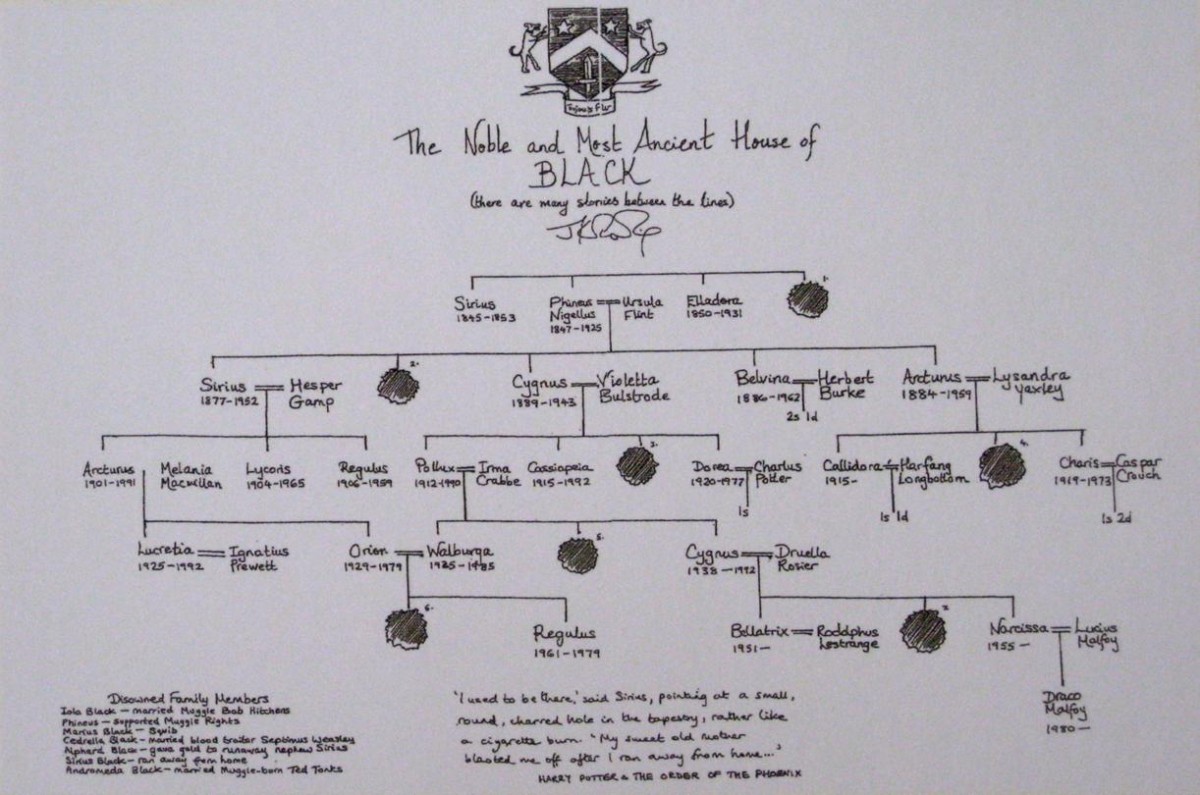 Toujours Pur
The Noble and Most Ancient House of
BLACK
(there are many stories between the lines)
JKRowling
1.
Sirius Phineas Ursula Elladora
1845-1853 Nigellus Flint 1850-1931
1847-1925
2.
Sirius Hesper Cygnus Violetta Belvina Herbert Arcturus Lysandra
1877-1952 Gamp 1889-1943 Bulstrode 1886-1962 Burke 1884-1959 Yaxley
2s 1d
3. 4.
Arcturus Melania Lycoris Regulus Pollux Irma Cassiopeia Dorea Charlus Callidora Harfang Charis Caspar
1901-1991 Macmillan 1904-1965 1906-1959 1912-1990 Crabbe 1915-1992 1920-1977 Potter 1915- Longbottom 1919-1973 Crouch
1s 1s 1d 1s 2d
5.
Lucretia Ignatius Orion Walburga Cygnus Druella
1925-1992 Prewett 1929-1979 1925-1985 1938-1992 Rosier
6. 7.
Regulus Bellatrix Rodolphus Narcissa Lucius
1961-1979 1951- Lestrange 1955- Malfoy
Draco
Malfoy
1980-
Disowned Family Members
Isla Black - married Muggle Bob Hitchens
Phineus - supported Muggle Rights
Marius Black - Squib
Cedrella Black - married blood traitor Septimus Weasley
Alphard Black - gave gold to runaway nephew Sirius
Sirius Black - ran away from home
Andromeda Black - married Muggle-born Ted Tonks
'I used to be there,' said Sirius, pointing at a small,
round, charred hole in the tapestry, rather like
a cigarette burn. 'My sweet old mother
blasted me off after I ran away from home...'
HARRY POTTER & THE ORDER OF THE PHOENIX